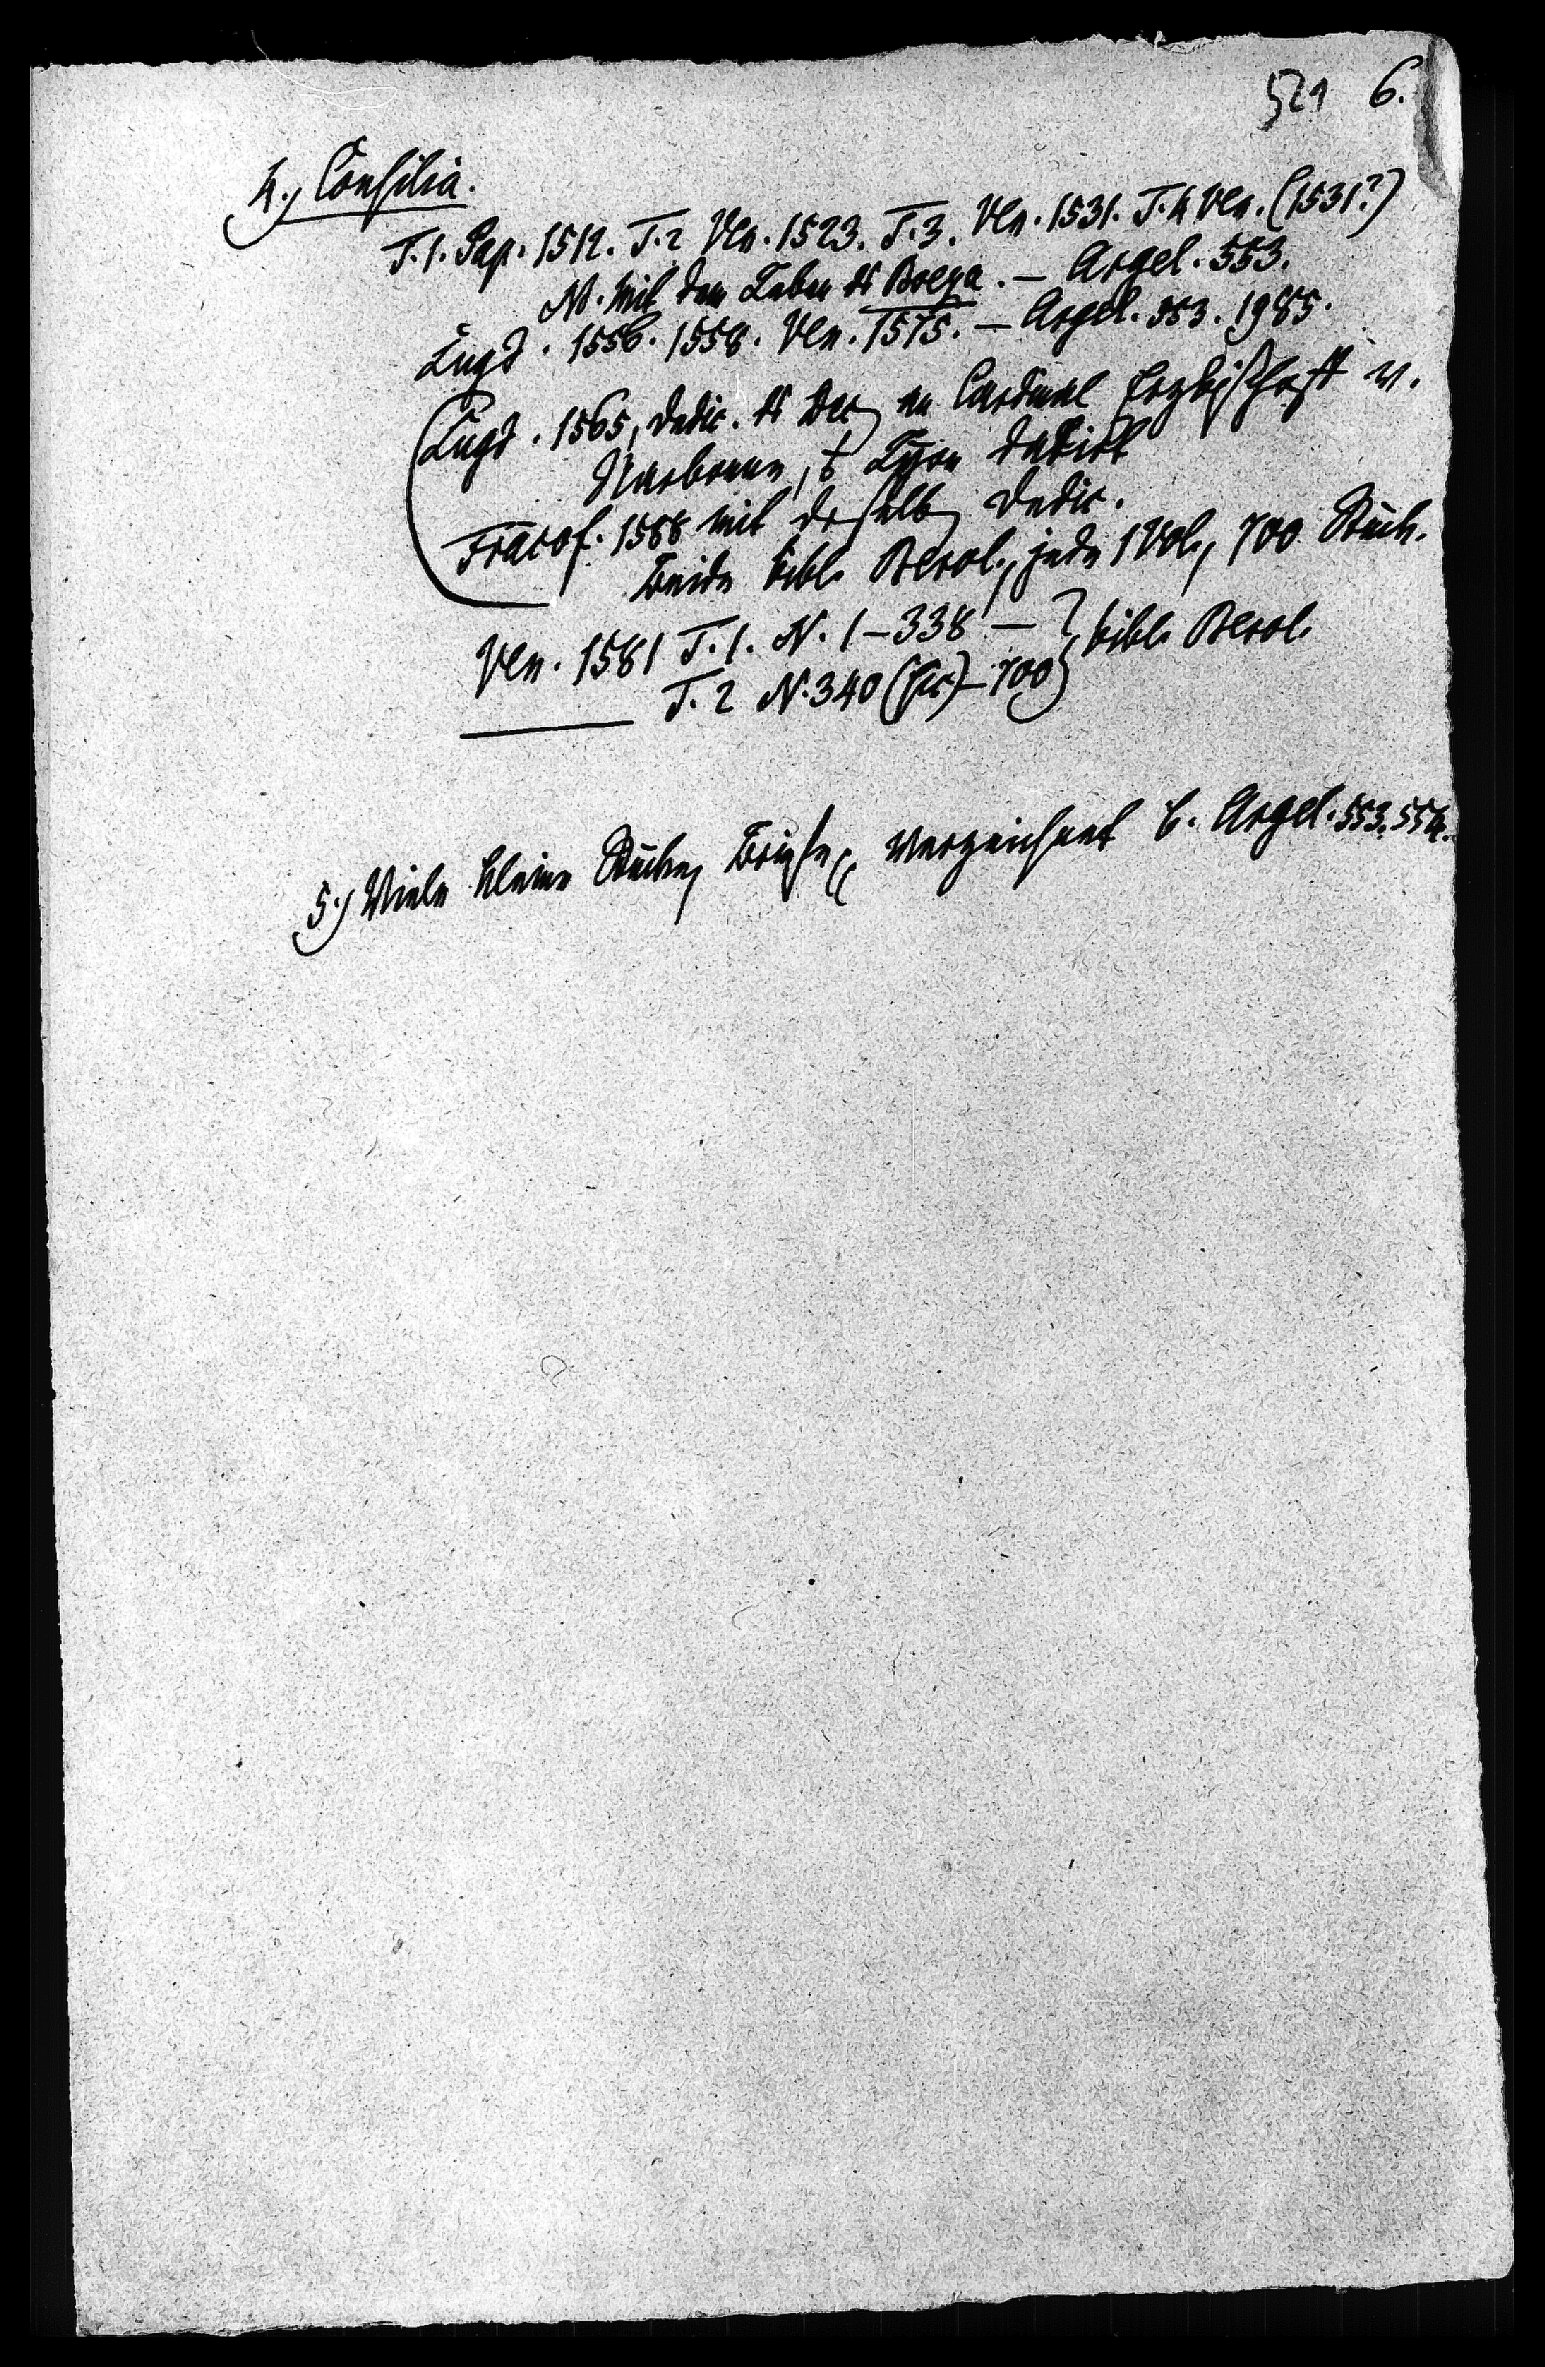 521 6.
4., Consilia.
T. 1. Pap. 1512. T. 2 Ven. 1523. T. 3. Ven. 1531. T. 4 Ven. (1531?)
NB. mit dem Leben Boeza. — Argel. 553.
Lugd. 1556. 1558. Ven. 1575. — Argel. 553. 1985.
Lugd. 1565, Dedic. an Cardinal Erzbischoff v.
Narbonne, Lyon datirt
Francof. 1588 mit derselb Dedic.
Beide bibl. Berol., jede 1 Vol., 700 Stück.
Ven. 1581 T. 1. N. 1–338 — } bibl. Berol.
T. 2 N. 340 (sic) – 700
5.) Viele kleine Stücke, Briefe, verzeichnet b. Argel. 553. 554.